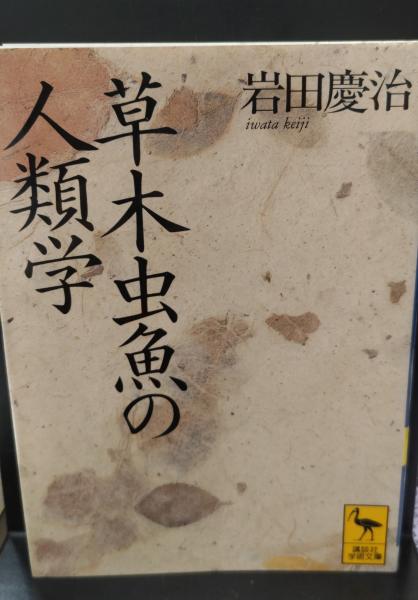 岩田慶治
iwata keiji
草木虫魚の
人類学
講談社
学術文庫